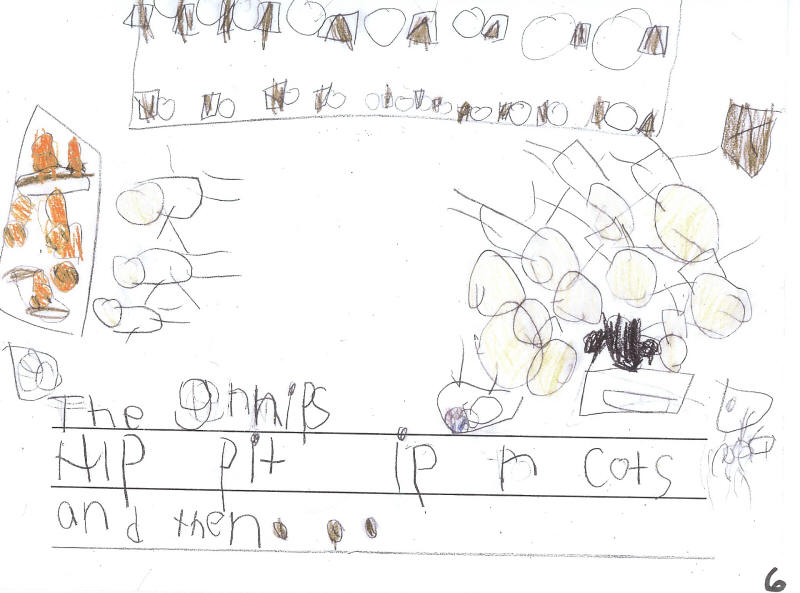 The gnnips
HIP pit ip n cots
and then...
6